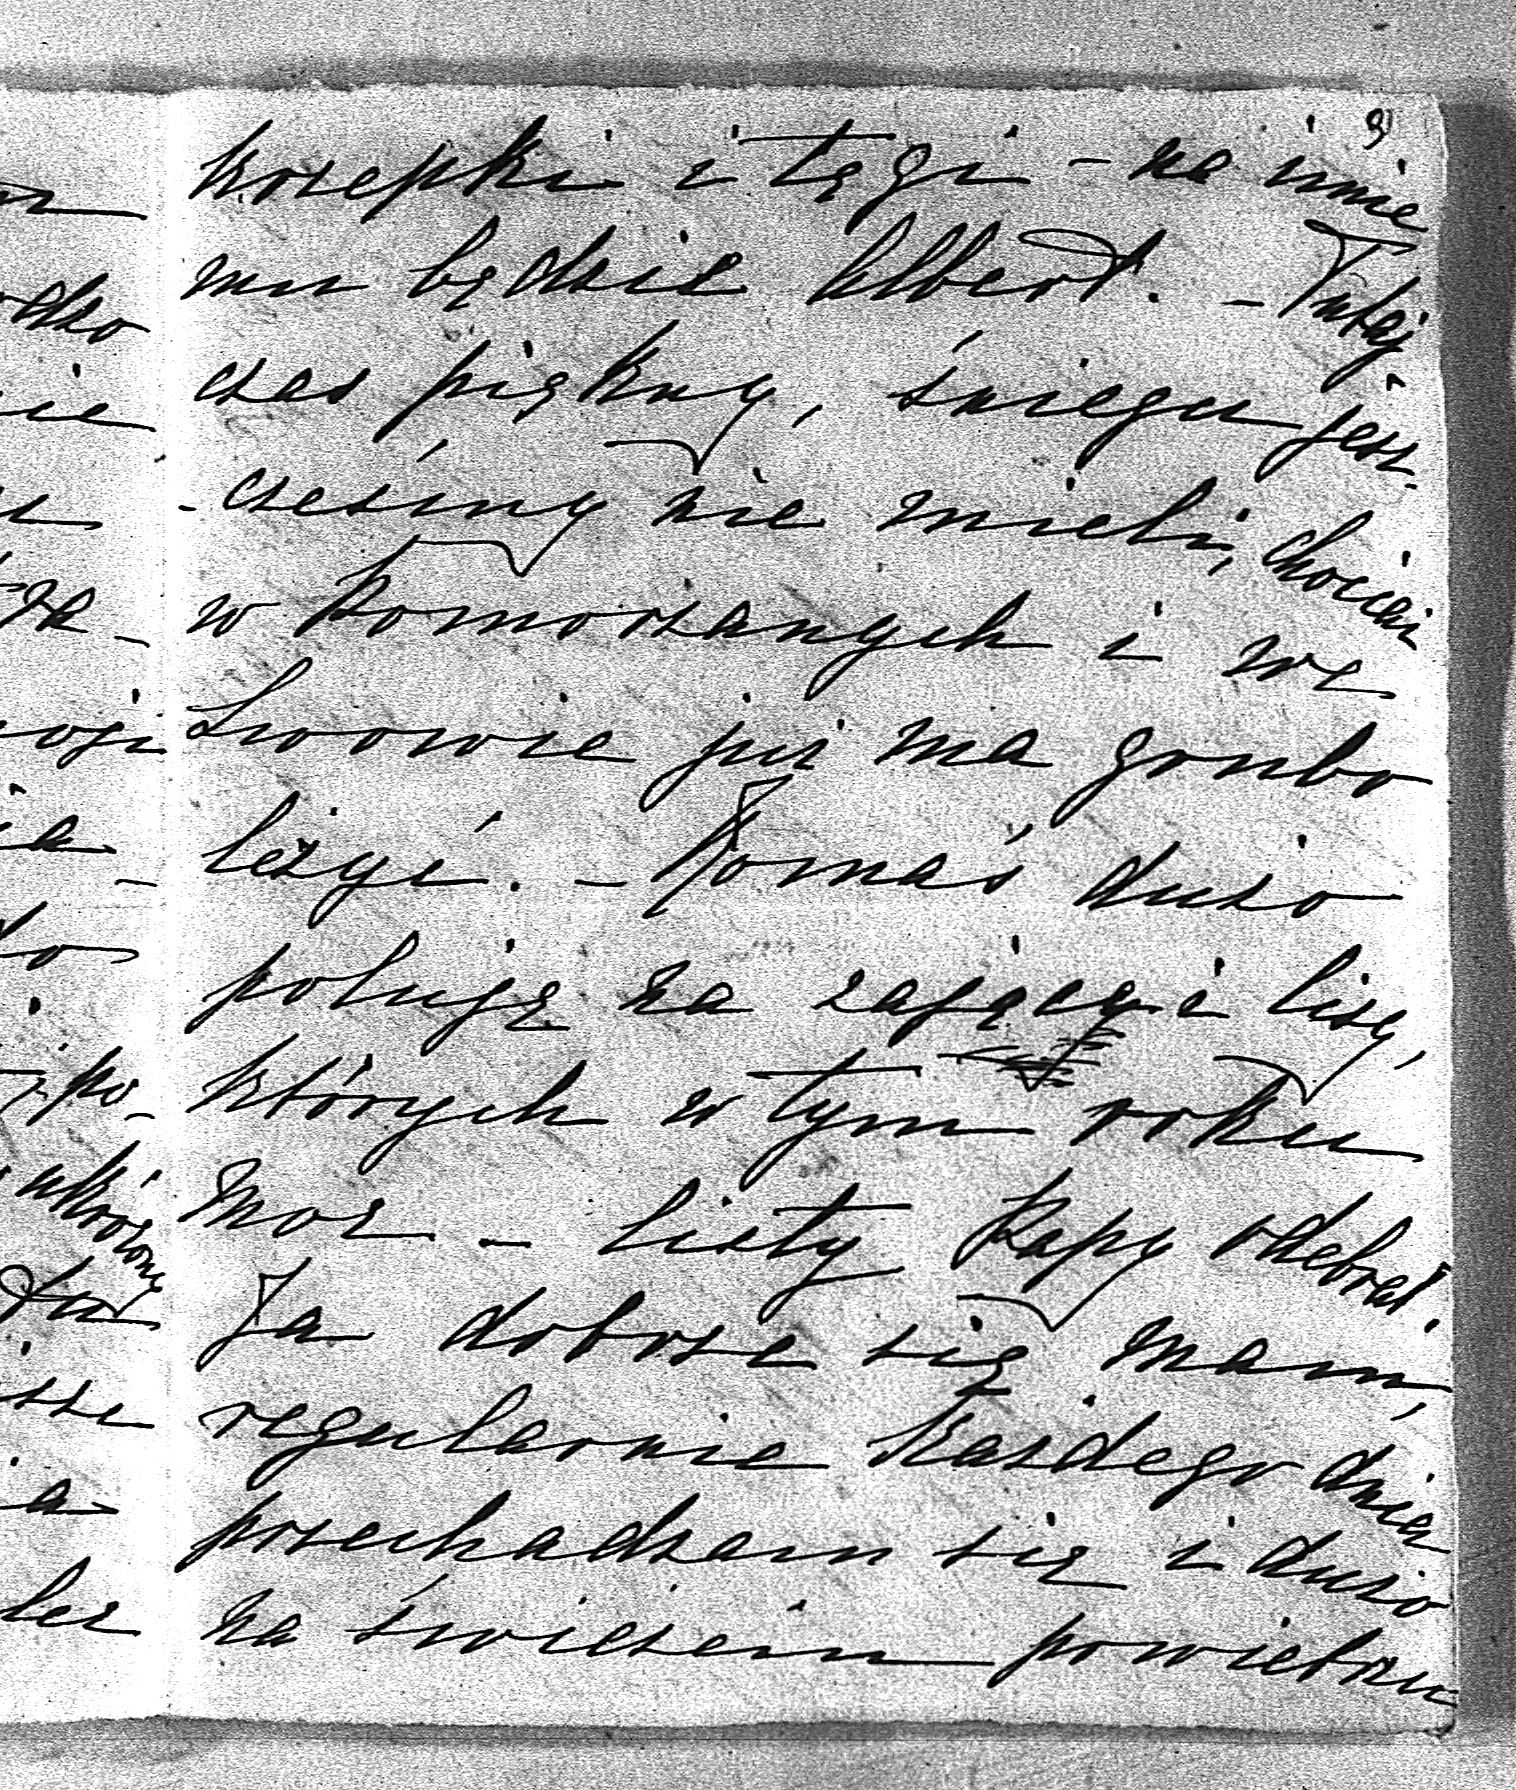 3)
krzepki i tęgi – na imię
mu będzie Albert. – Tutaj
czas piękny, śniegu jesz-
-cześmy nie mieli, chociaż
w Komorzanych i we
Lwowie już ma grubo
leżyć. – Tomaś dużo
poluje na zające i lisy,
których w tym roku
moz – listy Papy odebrał.
Ja dobrze się mam,
regularnie każdego dnia
przechadzam się i dużo
na świeżem powietrzu